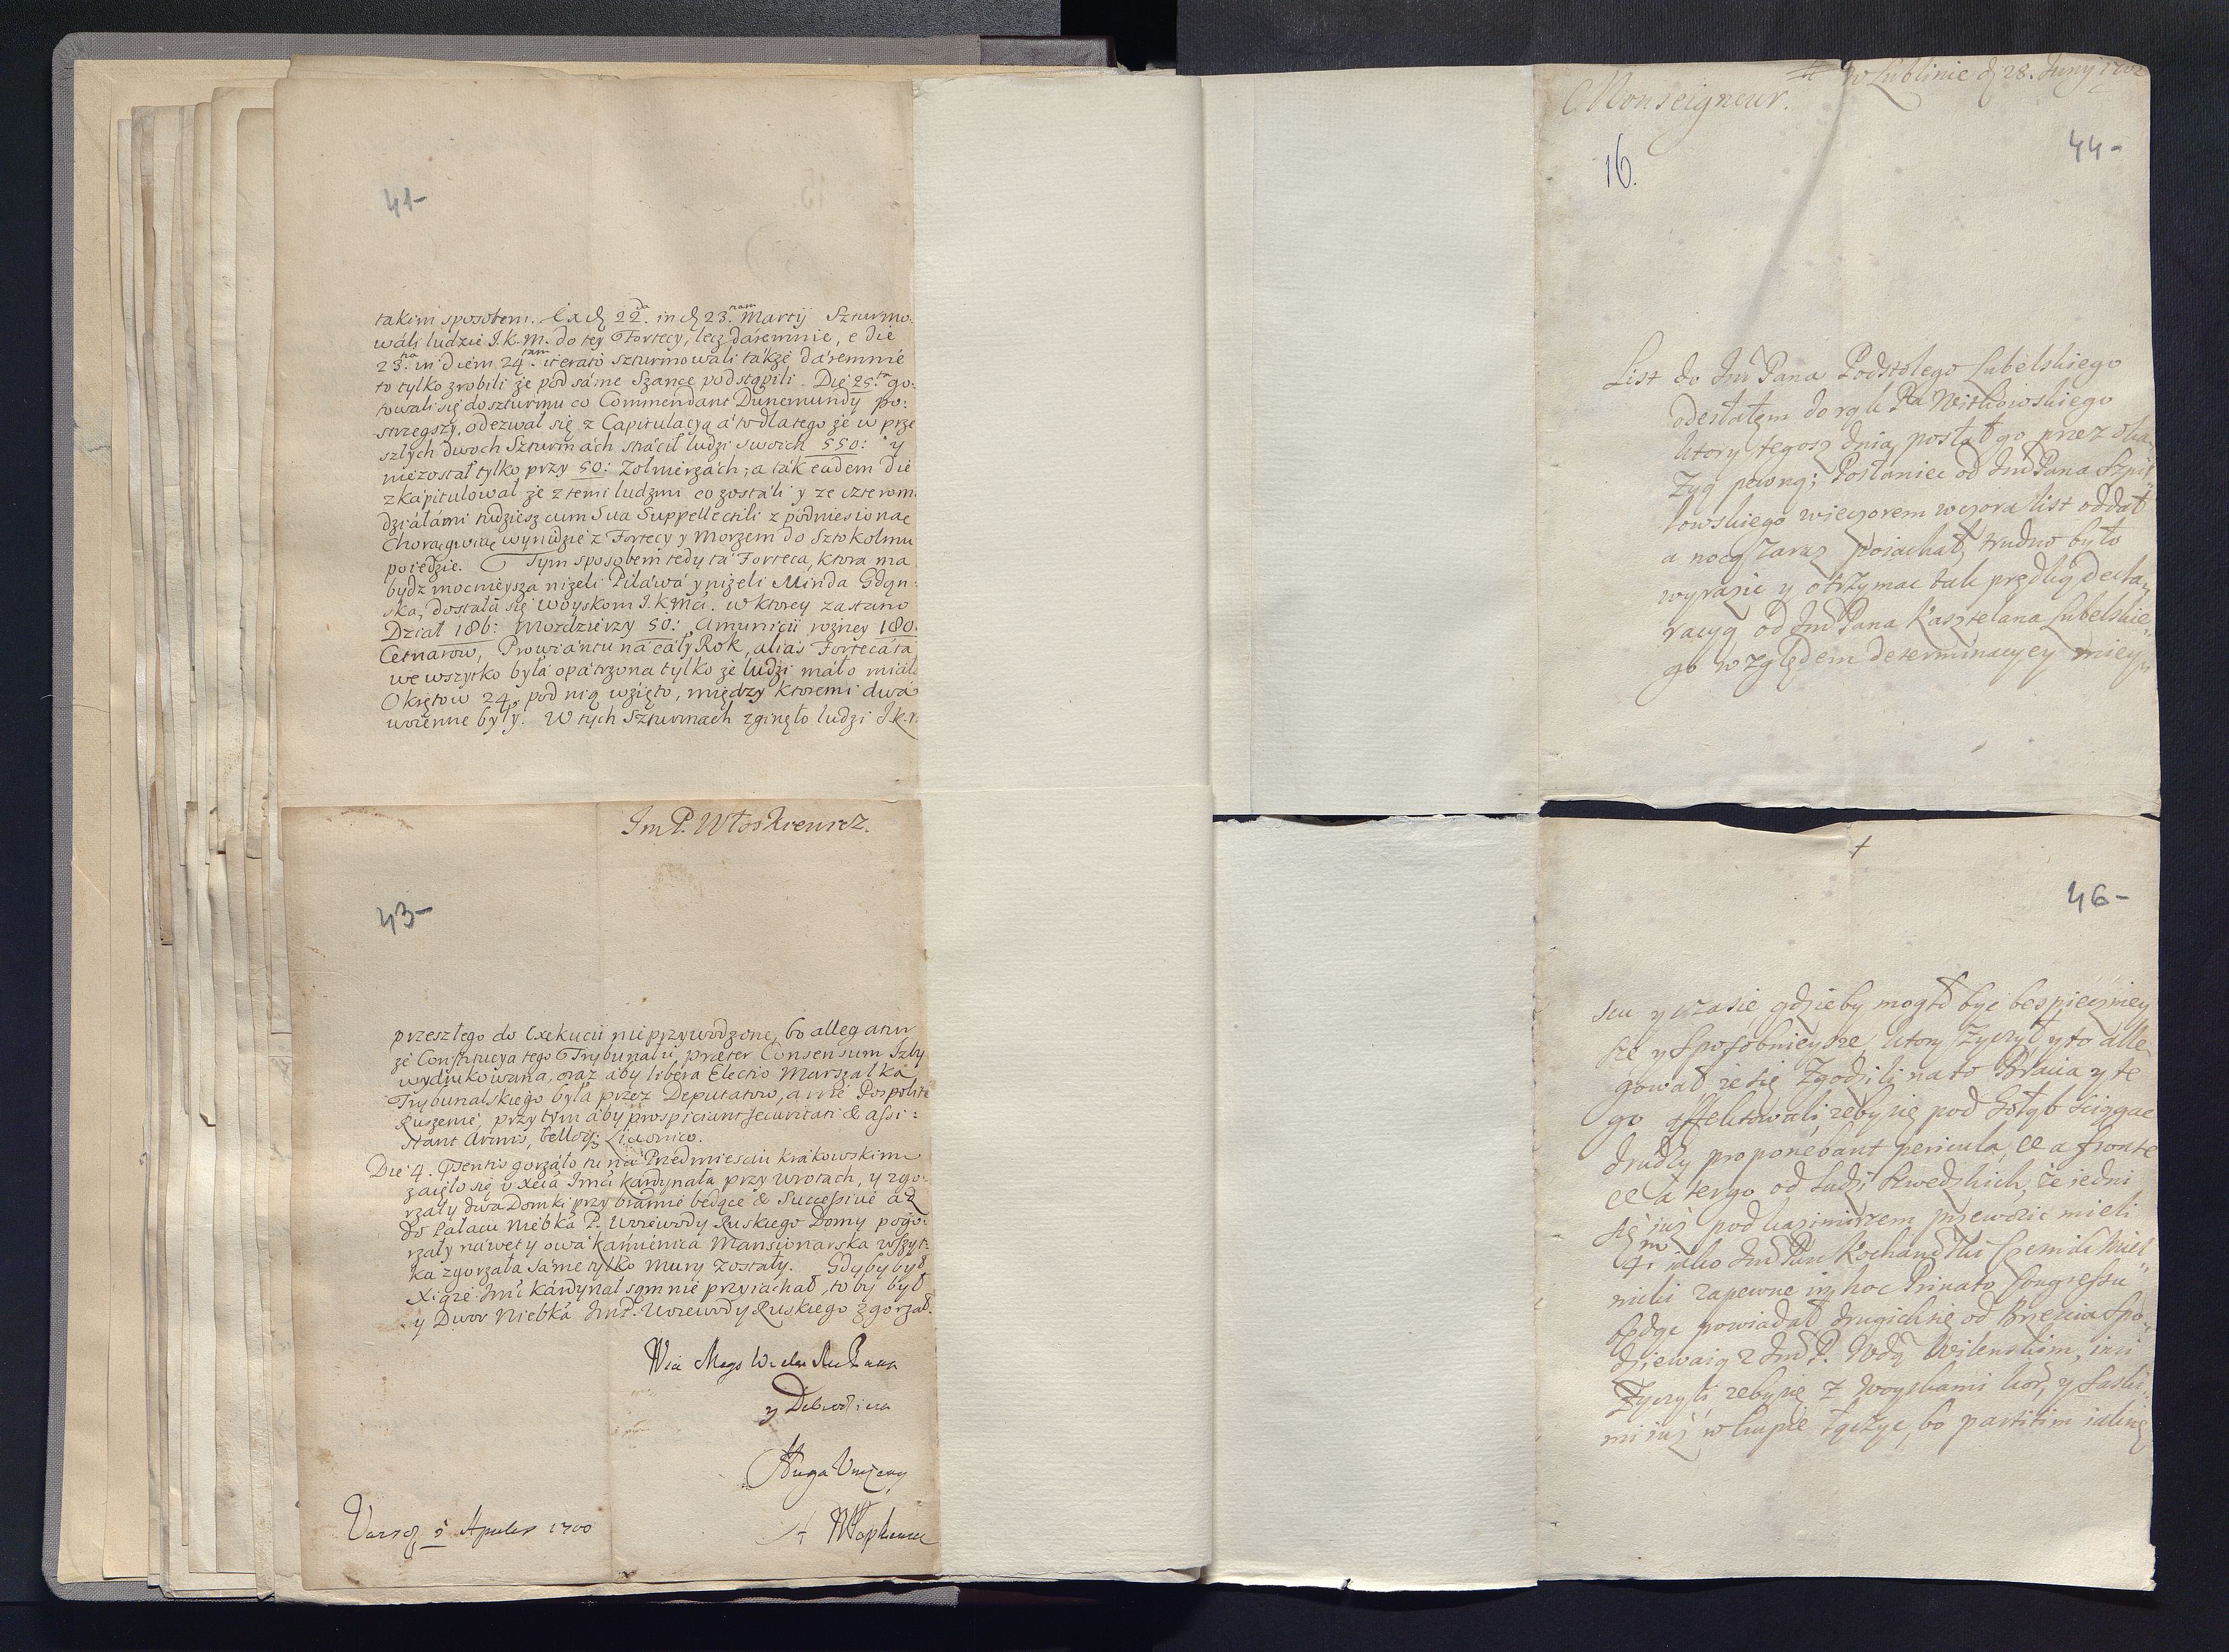 41-
takim sposobem. Ex d 22da. in d 23.tiam Martij Szturmo:
wáli ludzie J.K.M. do tey Fortecy, lecz dáremnie, e die
23.tia in diem 24.tam iterato szturmowali tákze dáremnie
to tylko zrobili że pod sáme Szance podstąpili. Die 25.ta go:
towali się do szturmu co Commendant Dunemundy po:
strzegszy, odezwał się z Capitulacyą á to dla tego że w prze
szłych dwoch Szturmách strácił ludzi swoich 550: y
niezostał tylko przy 50: Zołnierzách; a ták eadem die
zkápitulował że z temi ludzmi co zostáli y ze czterom
dziáłámi tudziesz cum Sua Suppellectili z podniesioną
Chorągwią wynidzie z Fortecy y Morzem do Sztokolmu
poiedzie. Tym sposobem tedy tá Forteca, ktora ma
bydz mocnieysza niżeli Piláwá y niżeli Minda Gdąn:
ska, dostáłá się woyskom J.K.Mci. w ktorey zastano
Dział 186: Mozdzierzy 50: Amunicii rozney 180
Cetnarow, Prowiántu ná cáły Rok, aliás Fortecá tá
we wszytko byłá opátrzona tylko że ludzi máło miáłá
Okrętow 24. pod nią wzięto, między ktoremi dwá
woienne były. W tych Szturmach zginęło ludzi J.K.
Jm P. Włoskiewicz.
43-
przeszłego do Exekucii nie przywodzone, bo allegatur
że Constitucya tego Trybunału, præter Consensum Izby
wydrukowana, oraz áby libera Electio Marszałka
Trybunalskiego byłá przez Deputatow, a nie Pospolite
Ruszenie, przy tym áby prospiciant securitati & assi:
stant armis, bello Livonico.
Die 4. præsentis gorzáło tu ná Przedmiesciu Krákowskim
zaięło się u Xcia Jmci Kárdynałá przy wrotach, y zgo:
rzáły dwa Domki przy bramie będące & Successivè áż
do Pałacu Niebká P. Woiewody Ruskiego Domy pogo:
rzáły náwet y owá kámienica Mansionarska wszyt:
ká zgorzáła sáme tylko mury zostáły. Gdyby był
Xiąże Jmć Kárdynał sąm nie przyiachał, to by był
y Dwor Niebká Jm P. Woiewody Ruskiego zgorzał.
y Dobrodzieia
Sługa Unizony
Varsa 5 Aprilis 1700
w Lublinie d 28. Juny 1702
Monseigneur.
16.
44-
List do Jm Pana Podstolego Lubelskiego
odesłałem do rąk Pa Witkowskiego
ktory tegosz dnia posłał go przez oka
zyą pewną; Posłaniec od Jm Pana Szpił
kowskiego wieczorem wczora list oddał
a nocą zaraz poiachał, trudno było
wyrazic y otrzymac tak prędką decla,
racyą od Jm Pana Kasztelana Lubelskie,
go względem determinacyey miey,
46-
scu y czasie, gdzieby mogło byc bespieczniey
sze y sposobnieysze, ktory życzył y to alle
gował ze się zgodzili na to Bracia y te
go affektowali, zeby się pod Gołąb sciągac
drudzy proponebant pericula, et a fronte
et a tergo od Ludzi Szwedzkich, że iedni
się iuż pod Kazimirzem przewozic mieli
4. iako Jm Pan Kochanski Czesnik Miel
nicki zapewne in hoc Privato Congressu
będąc powiadał drugich się od Brzescia spo,
dziewaią z Jm P. Wdą Wilenskim, inni
życzyli, zeby się z woyskami kor, y Saski,
mi iuż w kupie łączyc, bo partitim